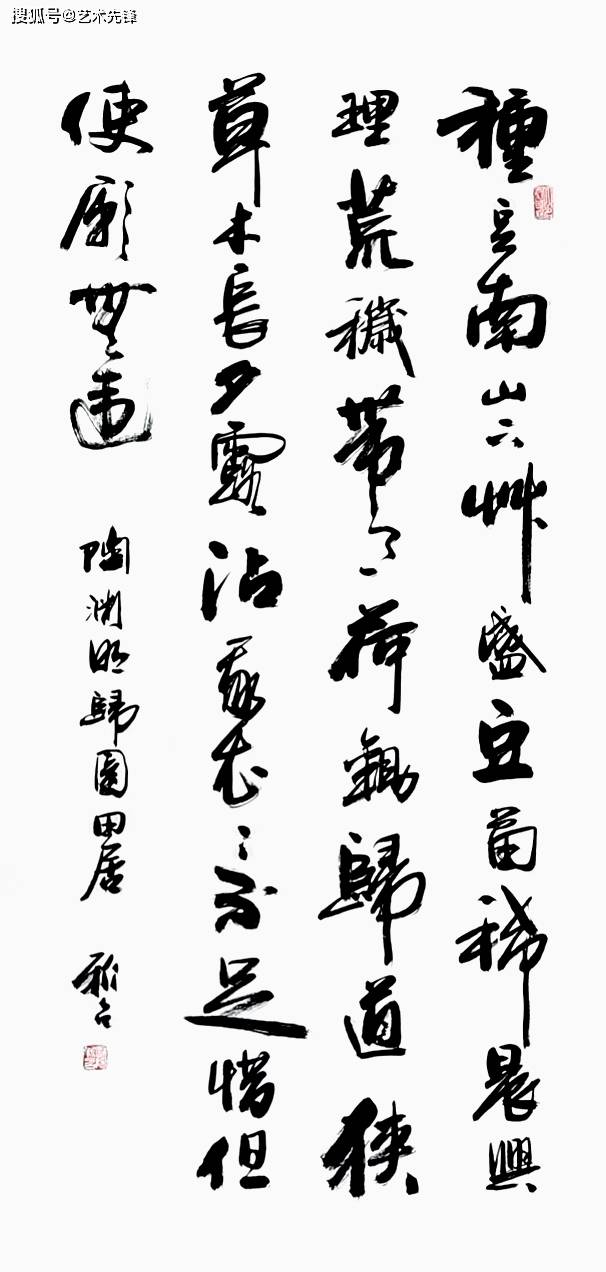 搜狐号@艺术先锋
種豆南山下艸盛豆苗稀晨興
理荒穢帶月荷鋤歸道狹
草木長夕露沾我衣〻不足惜但
使願無違
陶渊明歸園田居